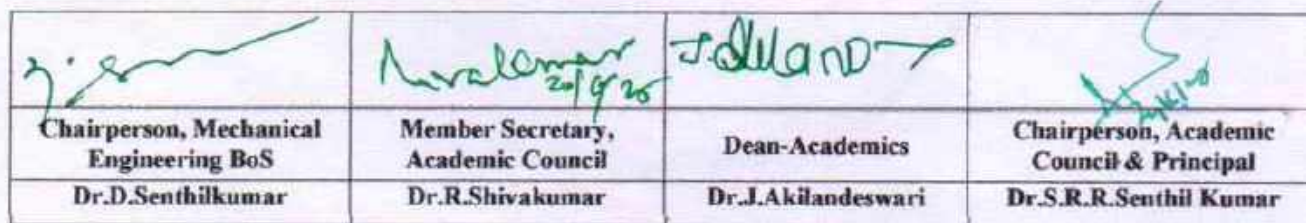 20/9/25
Chairperson, Mechanical
Engineering BoS
Member Secretary,
Academic Council
Dean-Academics
Chairperson, Academic
Council & Principal
Dr.D.Senthilkumar
Dr.R.Shivakumar
Dr.J.Akilandeswari
Dr.S.R.R.Senthil Kumar